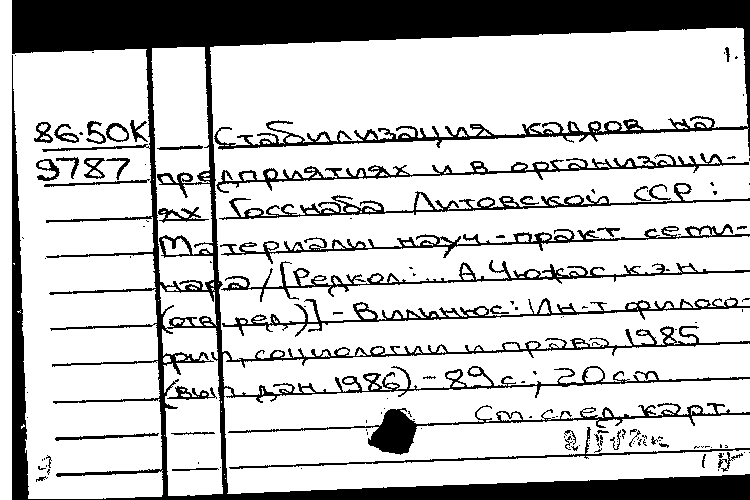 1.
86-50К Стабилизация кадров на
9787 предприятиях и в организаци-
ях Госснаба Литовской ССР:
Материалы науч.-практ. семи-
нара / [Редкол.: ... А. Чюжас, к.э.н.
(отв. ред.)]. - Вилинюс: Ин-т филосо-
фии, социологии и права, 1985
(вып. дан. 1986). - 89 с.; 20 cm
См. след. карт.